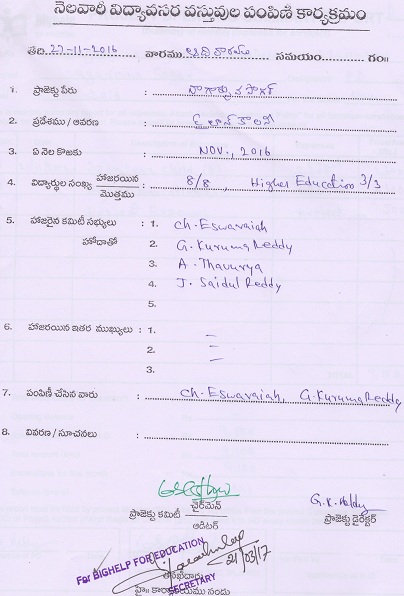 నెలవారీ విద్యావసర వస్తువుల పంపిణి కార్యక్రమం
తేది 27-11-2016 వారము ఆదివారము సమయం గం॥
1. ప్రాజెక్టు పేరు : నాగార్జున సాగర్
2. ప్రదేశము / ఆవరణ : పైలాన్ కాలనీ
3. ఏ నెల కొఱకు : NOV., 2016
4. విద్యార్థుల సంఖ్య హాజరయిన / మొత్తము : 8/8, Higher Education 3/3
5. హాజరైన కమిటీ సభ్యులు : 1. Ch. Eswaraiah
హోదాతో 2. G. Kuruma Reddy
3. A. Thavurya
4. J. Saidul Reddy
5.
6. హాజరయిన ఇతర ముఖ్యులు : 1. –
2. –
3.
7. పంపిణీ చేసిన వారు : Ch. Eswaraiah, G. Kuruma Reddy
8. వివరణ / సూచనలు :
ప్రాజెక్టు కమిటీ చైర్‌మన్ / ఆడిటర్
G. K. Reddy
ప్రాజెక్టు డైరెక్టర్
For BIGHELP FOR EDUCATION
21/03/17
SECRETARY